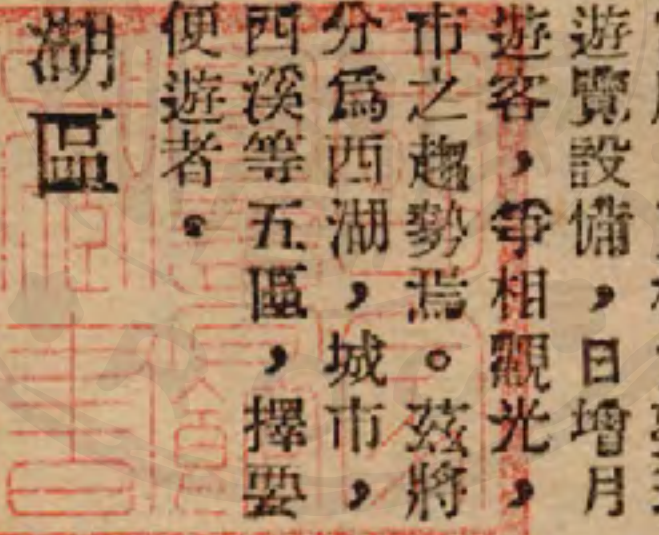 遊覽設備，日增月
遊客，爭相觀光，
市之趨勢焉。茲將
分爲西湖，城市，
西溪等五區，擇要
便遊者。
湖區